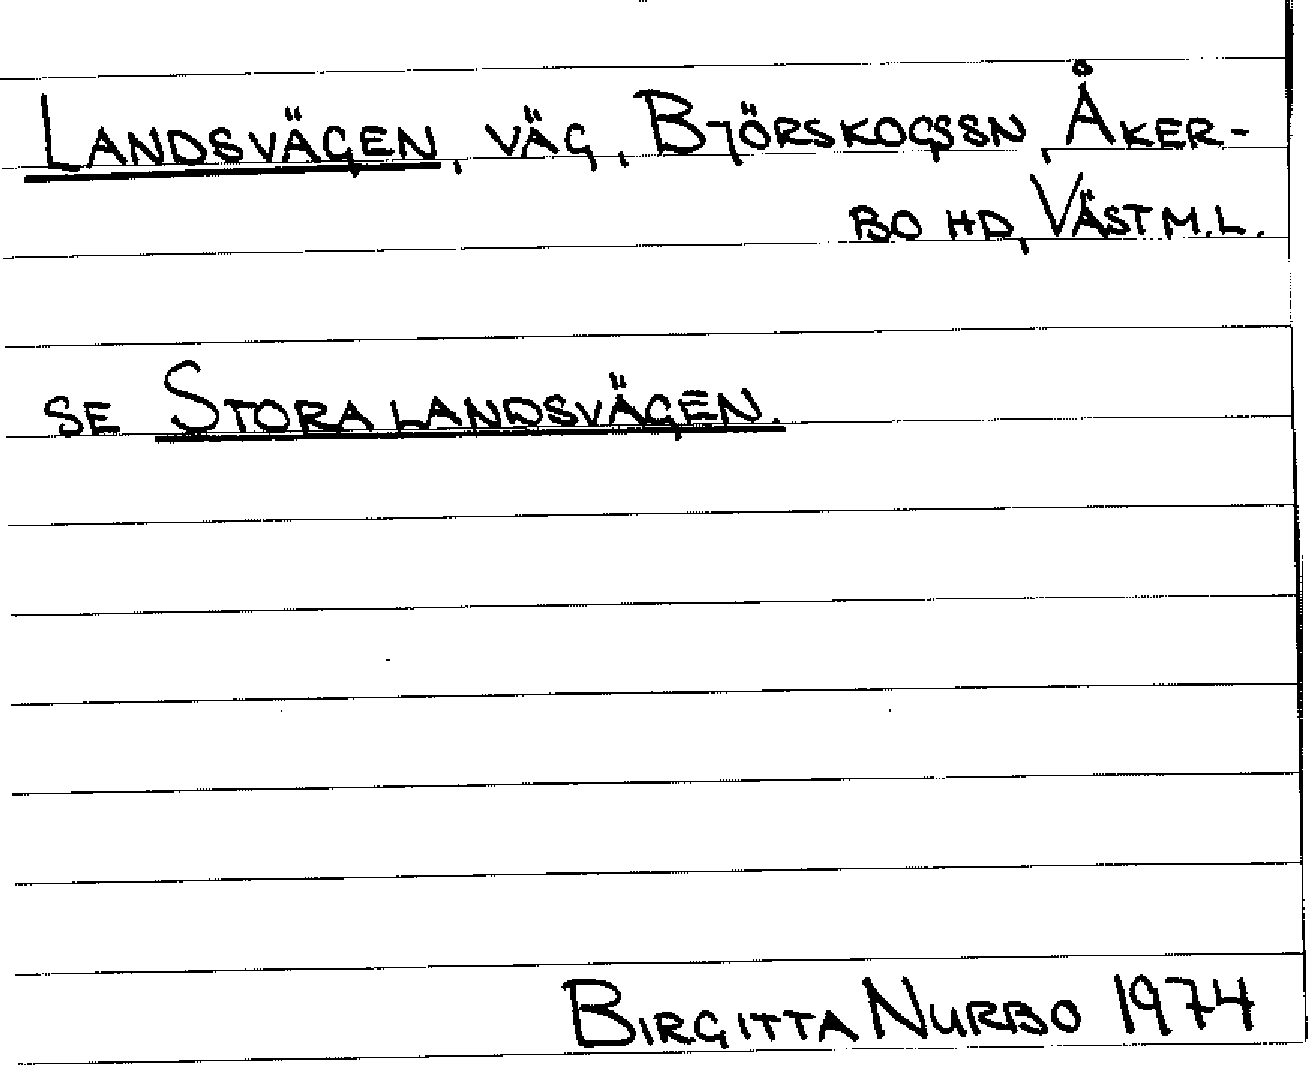 LANDSVÄGEN, VÄG, BJÖRSKOGSSN, ÅKER-
BO HD, VÄSTM.L.
SE STORA LANDSVÄGEN.
BIRGITTA NURBO 1974